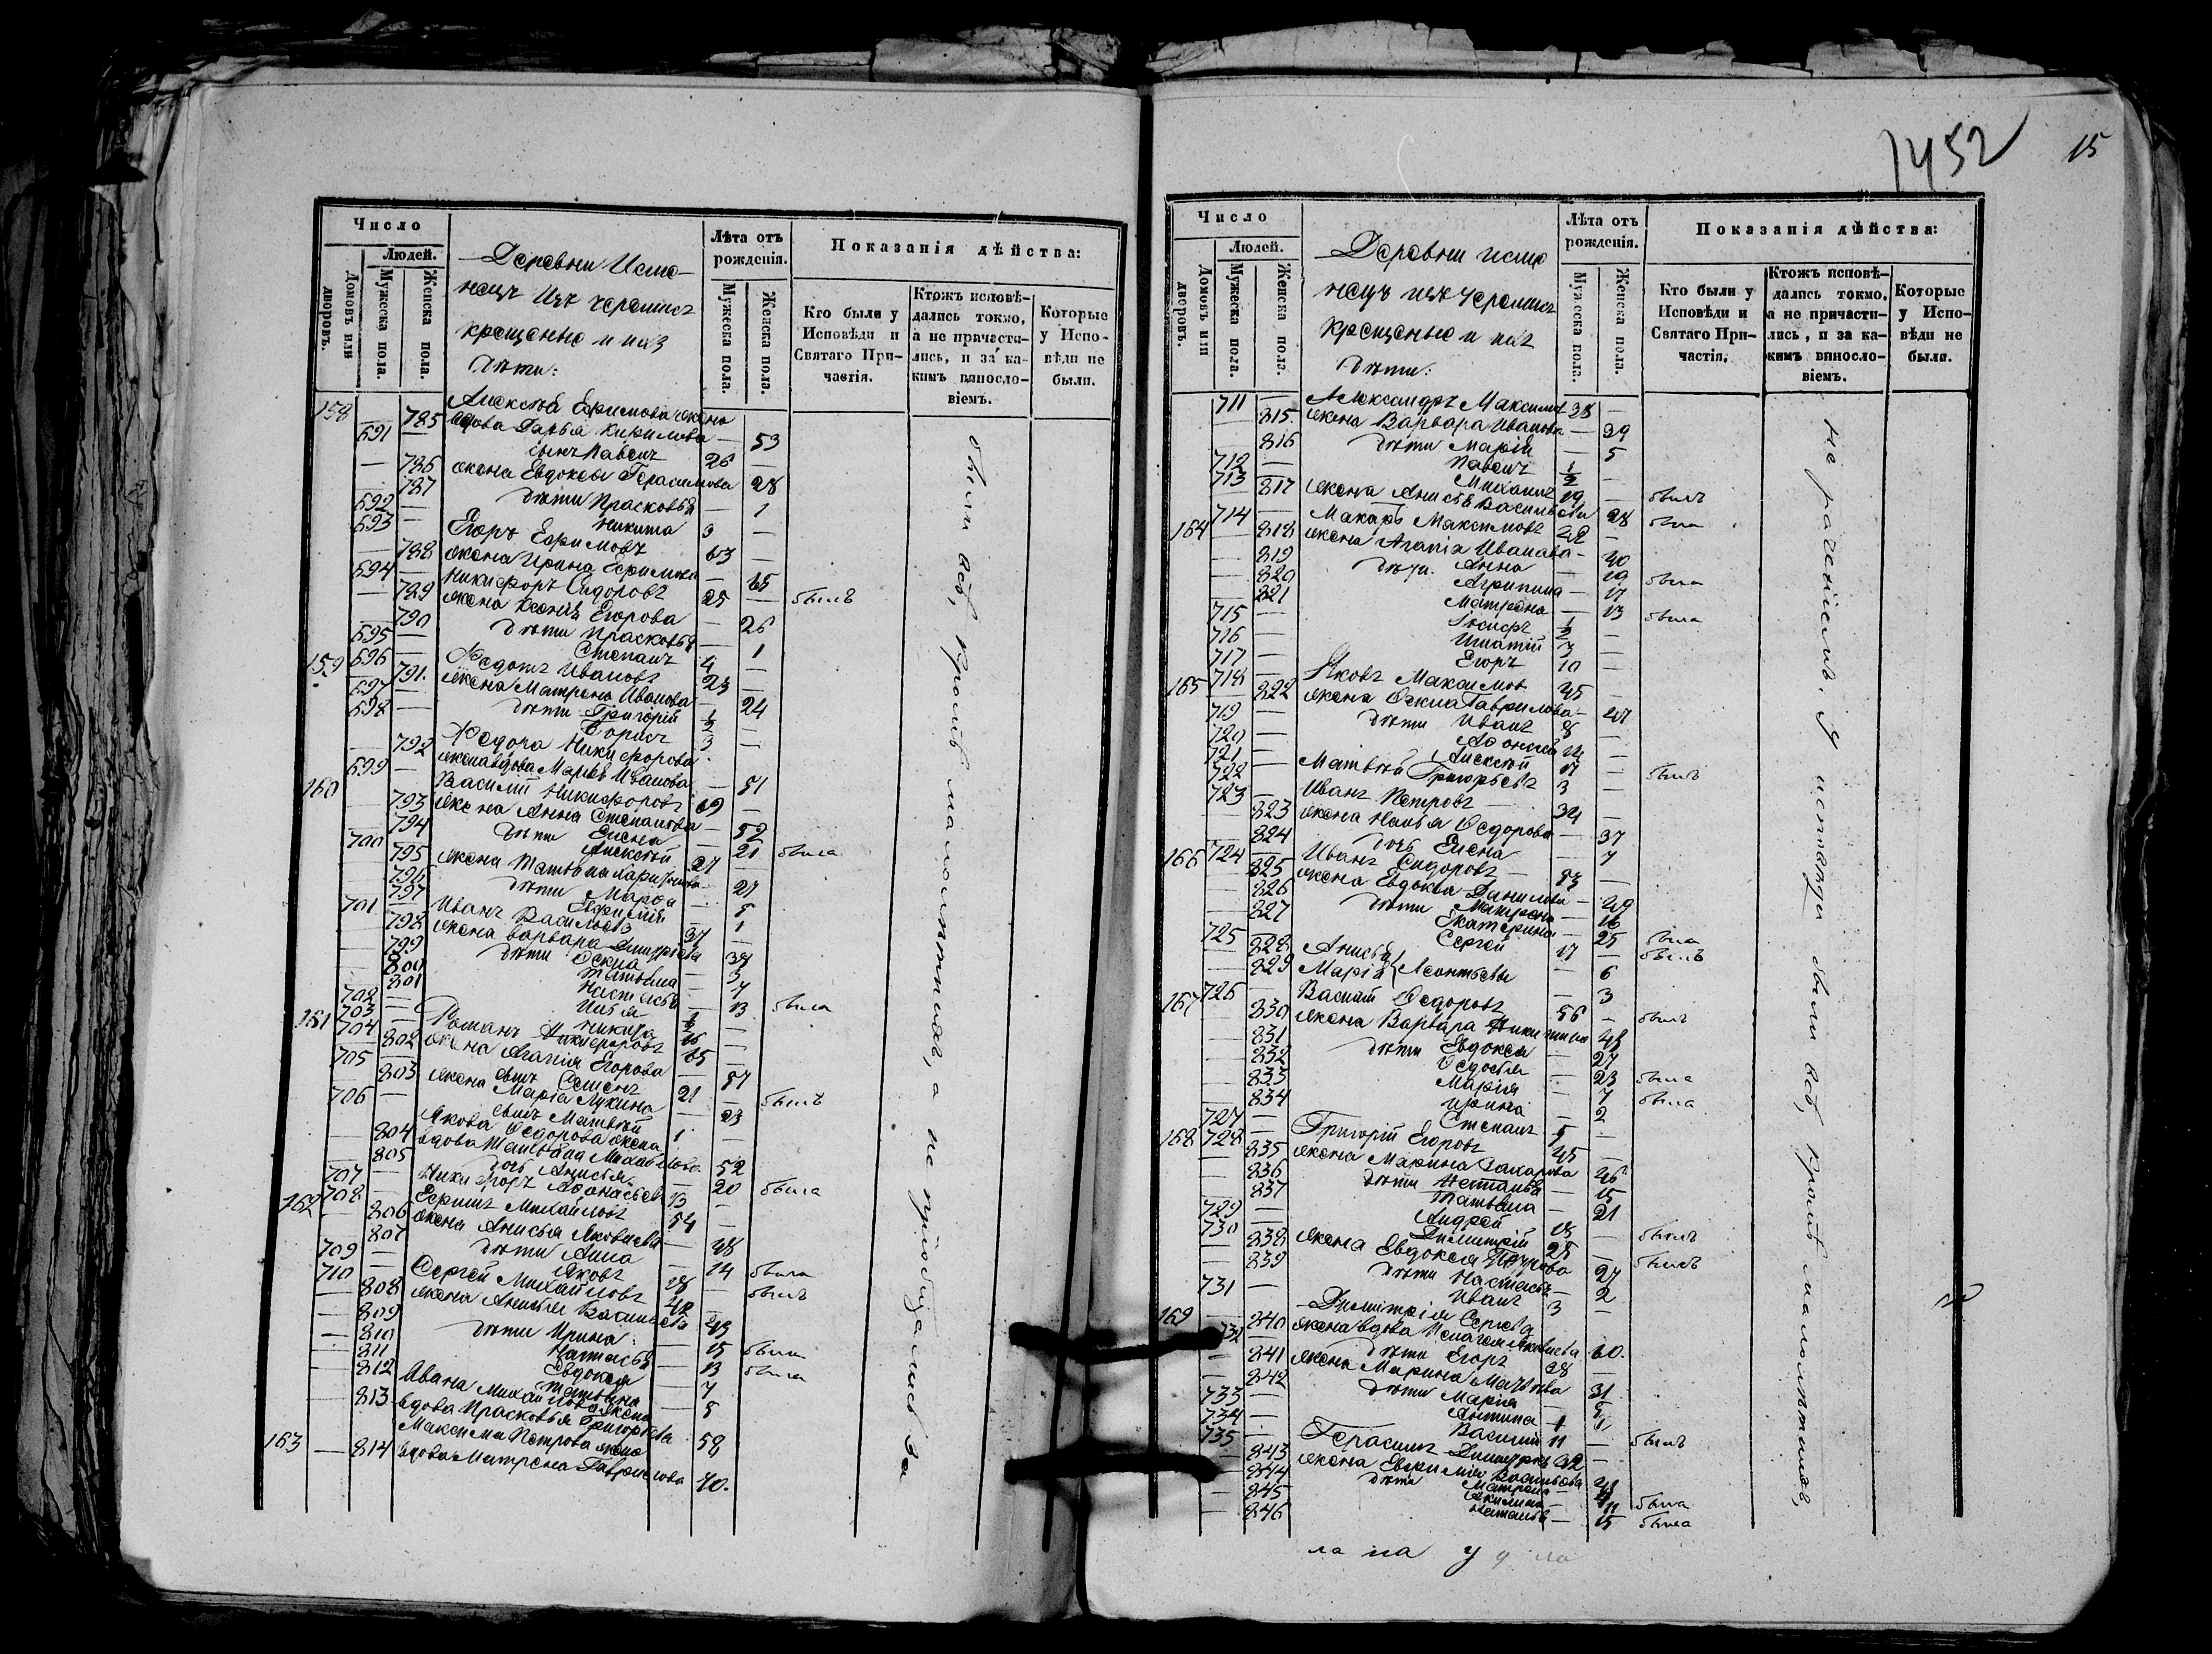 Число
Людей.
Домовъ или дворовъ.
Мужеска пола.
Женска пола.
Деревни
крещеные и ихъ
дѣти:
Лѣта отъ рожденія.
Мужеска пола.
Женска пола.
Показанія дѣйства:
Кто были у Исповѣди и Святаго Причастія.
Ктожъ исповѣдались токмо, а не причастились, и за какимъ винословіемъ.
Которые у Исповѣди не были.
158 — 785 Алексѣя Ефимова жена
вдова Дарья Кирилова — 53
691 — сынъ Павелъ 26 —
— 786 жена Евдокея Герасимова 28
— 787 дѣти Прасковья — 1
692 — Никита 3 —
693 — Егоръ Ефимовъ 63
— 788 жена Ирина Ефимова — 65
694 — Никифоръ Сидоровъ 25 — былъ
— 789 жена Ксенія Егорова — 26
— 790 дѣти Прасковья — 1
695 — Степанъ 4 —
159 696 — Федотъ Ивановъ 23 —
— 791 жена Матрена Иванова — 24
697 — дѣти Григорій 1/2 —
698 — Борисъ 3 —
Федора Никифорова
— 792 жена вдова Марья Иванова — 51
160 699 — Василій Никифоровъ 69 —
— 793 жена Анна Степанова — 52
— 794 дѣти Елена — 21 была
700 — Алексѣй 27 —
— 795 жена Татьяна — 27
— 796 дѣти Марфа — 5
— 797 Евфимія — 1
701 — Иванъ Васильевъ 37 —
— 798 жена Варвара Димитріева 38
— 799 дѣти Фекла — 3
— 800 Татьяна — 7
— 801 Настасья — 13 была
702 — Илья 1/2 —
703 — Никита 16 —
161 704 — Романъ Никифоровъ 65 —
— 802 жена Агапія Егорова — 57
705 — сынъ Семенъ 21 — былъ
— 803 жена Марія Лукина — 23
706 — сынъ Матвѣй 1
Якова Федорова жена
— 804 вдова Татьяна Михайлова 52
— 805 дочь Анисья — 20 была
707 — Никифоръ Афонасьевъ 13 —
162 708 — Ефимъ Михайловъ 54 —
— 806 жена Анисья Яковлева — 48
— 807 дѣти Анна — 14 была
709 — Яковъ 18 — былъ
710 — Сергей Михайловъ 42 —
— 808 жена Анисья Васильева 43
— 809 дѣти Ирина — 15 была
— 810 Настасья — 13 была
— 811 Евдокея — 7
— 812 Татьяна — 5
Ивана Михайлова жена
813 вдова Прасковья Григорьева 58
Максима Петрова жена
163 — 814 вдова Матрена Гаврилова 70.
были всѣ, кромѣ малолѣтнихъ, а не пріобщались за
1452
15
Число
Людей.
Домовъ или дворовъ.
Мужеска пола.
Женска пола.
Деревни
крещеные и ихъ
дѣти:
Лѣта отъ рожденія.
Мужеска пола.
Женска пола.
Показанія дѣйства:
Кто были у Исповѣди и Святаго Причастія.
Ктожъ исповѣдались токмо, а не причастились, и за какимъ винословіемъ.
Которые у Исповѣди не были.
711 — Александръ Максимовъ 38 —
— 815 жена Варвара Иванова — 39
— 816 дѣти Марія — 5
712 — Павелъ 1/2 —
713 — Михаилъ 19 — былъ
— 817 жена Анисья Васильева 28 была
164 714 — Макаръ Максимовъ 42 —
— 818 жена Агапія Иванова — 40
— 819 дѣти Анна — 19 была
— 820 Агрипина — 17
— 821 Матрена — 13 была
715 — Іосифъ 1/2 —
716 — Игнатій 3 —
717 — Егоръ 10 —
165 718 — Яковъ Максимовъ 45 —
— 822 жена Фекла Гаврилова — 47
719 — дѣти Иванъ 8 —
720 — Афонасей 14 —
721 — Алексѣй 17 — былъ
722 — Матвѣй Григорьевъ 3 —
723 — Иванъ Петровъ 34 —
— 823 жена Федорова — 37
— 824 дочь Елена — 7
166 724 — Иванъ Сидоровъ 53 —
— 825 жена Евдокея Данилова — 49
— 826 дѣти Матрена — 16
— 827 Екатерина — 25 была
725 — Сергей 17 — былъ
— 828 Анисья — 6
— 829 Марія Леонтьевы — 3
167 726 — Василій Федоровъ 56 — былъ
— 830 жена Варвара Никитина 48
— 831 дѣти Евдокея — 27
— 832 Федосья — 23 была
— 833 Марія — 7 была
— 834 Ирина — 2
727 — Степанъ 5 —
168 728 — Григорій Егоровъ 45 —
— 835 жена Марина Захарова 46
— 836 дѣти Наталья — 15
— 837 Татьяна — 21
729 — Андрей 18 — былъ
730 — Димитрій 25 — былъ
— 838 жена Евдокея Петрова 27
— 839 дѣти Настасья — 2
731 — Иванъ 3 —
Димитрія Сергеева
169 — 840 жена вдова Пелагея Яковлева 60.
732 — дѣти Егоръ 28 —
— 841 жена Марина Матвѣева 31
— 842 дѣти Марія — 5
733 — Антипа 1
734 — Василій 11 — былъ
735 — Герасимъ Димитріевъ 32 —
— 843 жена Евфимія Васильева
— 844 дѣти Матрена —
— 845 Акилина — 11 была
— 846 Наталья — 15 была
не раченіемъ. У исповѣди были всѣ, кромѣ малолѣтнихъ,